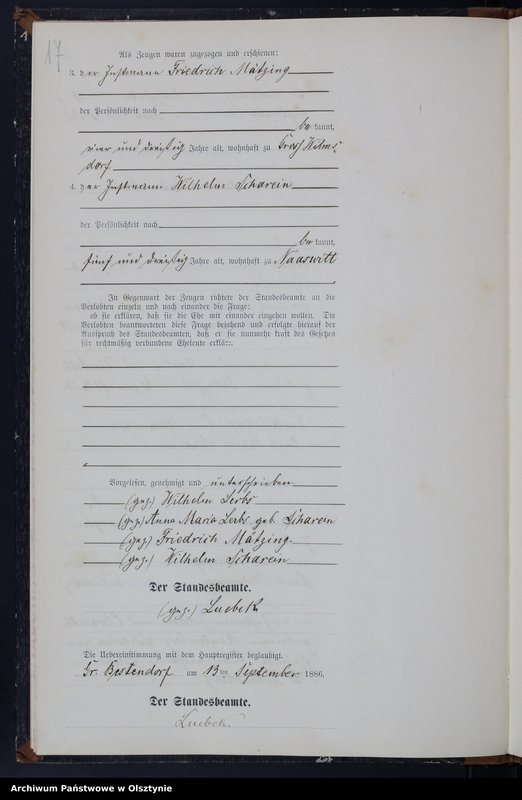 17
Als Zeugen waren zugezogen und erschienen:
3. der Instmann Friedrich Mätzing
der Persönlichkeit nach
be kannt,
vier und dreißig Jahre alt, wohnhaft zu Groß Wilms-
dorf
4. der Instmann Wilhelm Scharein
der Persönlichkeit nach
be kannt,
fünf und dreißig Jahre alt, wohnhaft zu Naaswitt
In Gegenwart der Zeugen richtete der Standesbeamte an die
Verlobten einzeln und nach einander die Frage:
ob sie erklären, daß sie die Ehe mit einander eingehen wollen. Die
Verlobten beantworteten diese Frage bejahend und erfolgte hierauf der
Ausspruch des Standesbeamten, daß er sie nunmehr kraft des Gesetzes
für rechtmäßig verbundene Eheleute erkläre.
Vorgelesen, genehmigt und unterschrieben
(gez.) Wilhelm Lerbs
(gez.) Anna Maria Lerbs geb. Scharein
(gez.) Friedrich Mätzing.
(gez.) Wilhelm Scharein
Der Standesbeamte.
(gez.) Luebek
Die Uebereinstimmung mit dem Hauptregister beglaubigt.
Gr. Bestendorf am 13ten September 1886.
Der Standesbeamte.
Luebek.
Archiwum Państwowe w Olsztynie